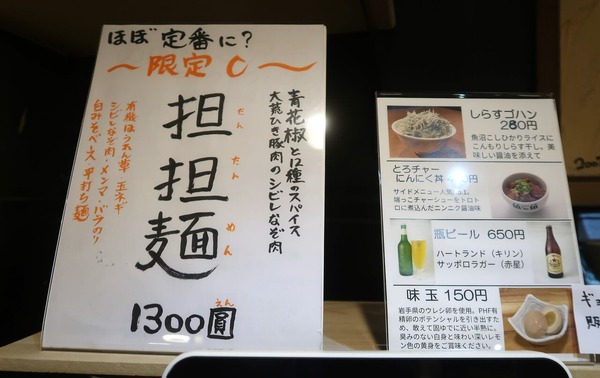 ほぼ定番に?
〜限定C〜
青花椒と12種のスパイス
大荒ひき豚肉のシビレなぞ肉
担担麺
たんたんめん
有機ほうれん草・玉ネギ
シビレなぞ肉・メンマ・バラのり
白みそベース 平打ち麺
1300圓
えん
しらすゴハン
280円
魚沼こしひかりライスに
こんもりしらす干し。美
味しい醤油を添えて
とろチャー
にんにく丼
サイドメニュー人気
端っこチャーシューをトロト
ロに煮込んだニンニク醤油味
瓶ビール 650円
ハートランド（キリン）
サッポロラガー（赤星）
味玉150円
岩手県のウレシ卵を使用。PHF有
精卵のポテンシャルを引き出すた
め、敢えて固ゆでに近い半熟に。
臭みのない白身と味わい深いレモ
ン色の黄身をご賞味ください。